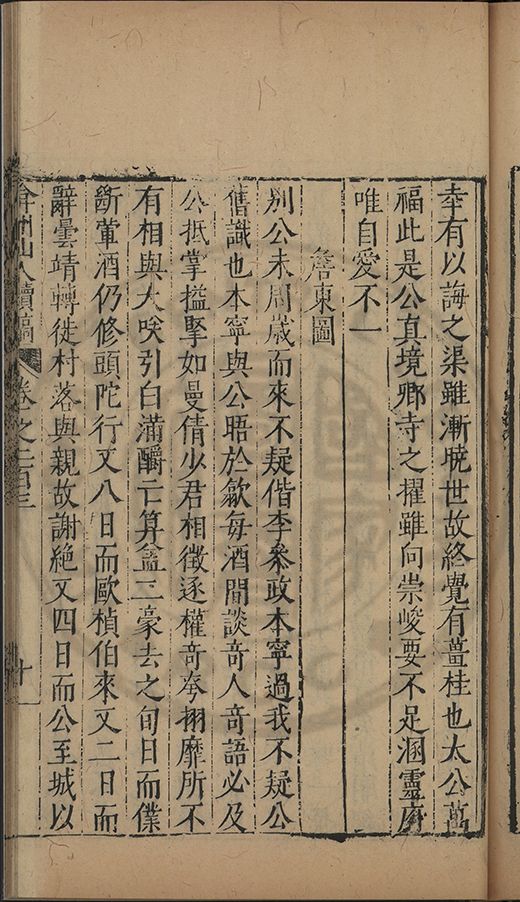 幸有以誨之渠雖漸曉世故終覺有薑桂也太公萬
福此是公真境鄉寺之擢雖向崇峻要不足溷靈府
唯自愛不一
詹東圖
別公未周歲而來不疑偕李參政本寧過我不疑公
舊識也本寧與公晤於歙每酒間談奇人奇語必及
公抵掌搤擥如曼倩少君相徵逐權奇夸掤靡所不
有相與大咲引白滿釂亡算盆三豪去之旬日而僕
斷葷酒仍修頭陀行又八日而歐楨伯來又二日而
辭曇靖轉徙村落與親故謝絕又四日而公至城以
弇州山人續稿 卷之二百三 十一